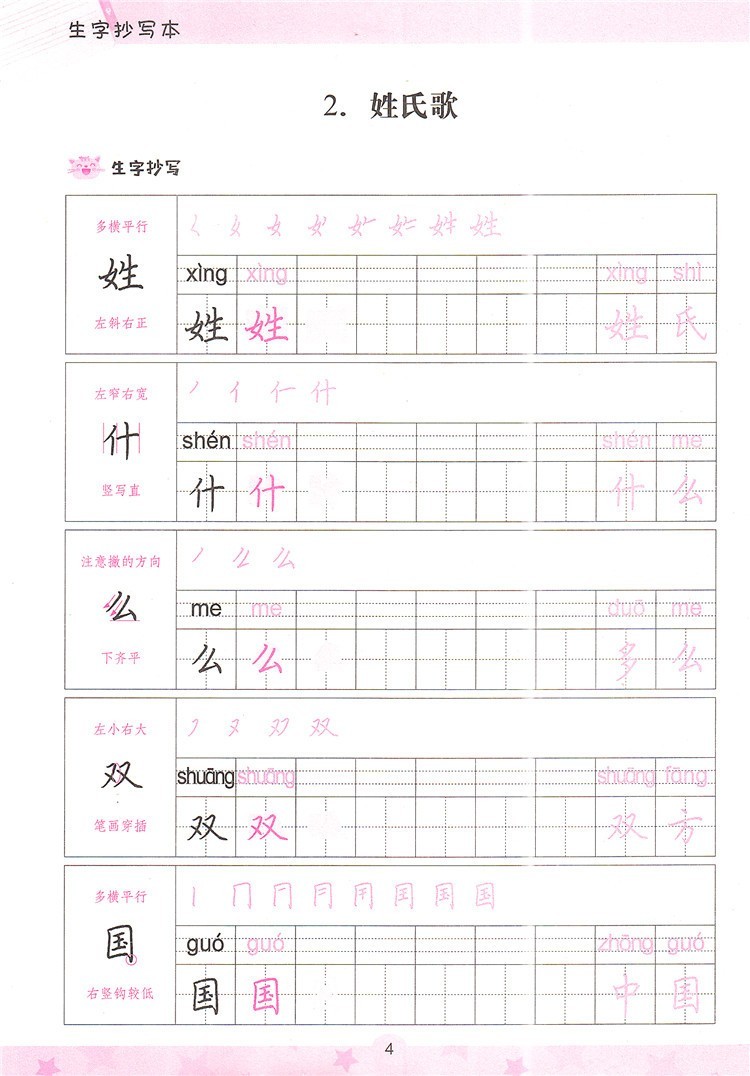 生字抄写本
2. 姓氏歌
生字抄写
多横平行
姓
左斜右正
く 女 女 女 女 女 姓 姓
xìng xìng xìng shì
姓 姓 姓 氏
左窄右宽
什
竖写直
丿 亻 仁 什
shén shén shén me
什 什 什 么
注意撇的方向
么
下齐平
丿 么 么
me me duō me
么 么 多 么
左小右大
双
笔画穿插
㇇ 又 双 双
shuāng shuāng shuāng fāng
双 双 双 方
多横平行
国
右竖钩较低
丨 冂 国 国
guó guó zhōng guó
国 国 中 国
4